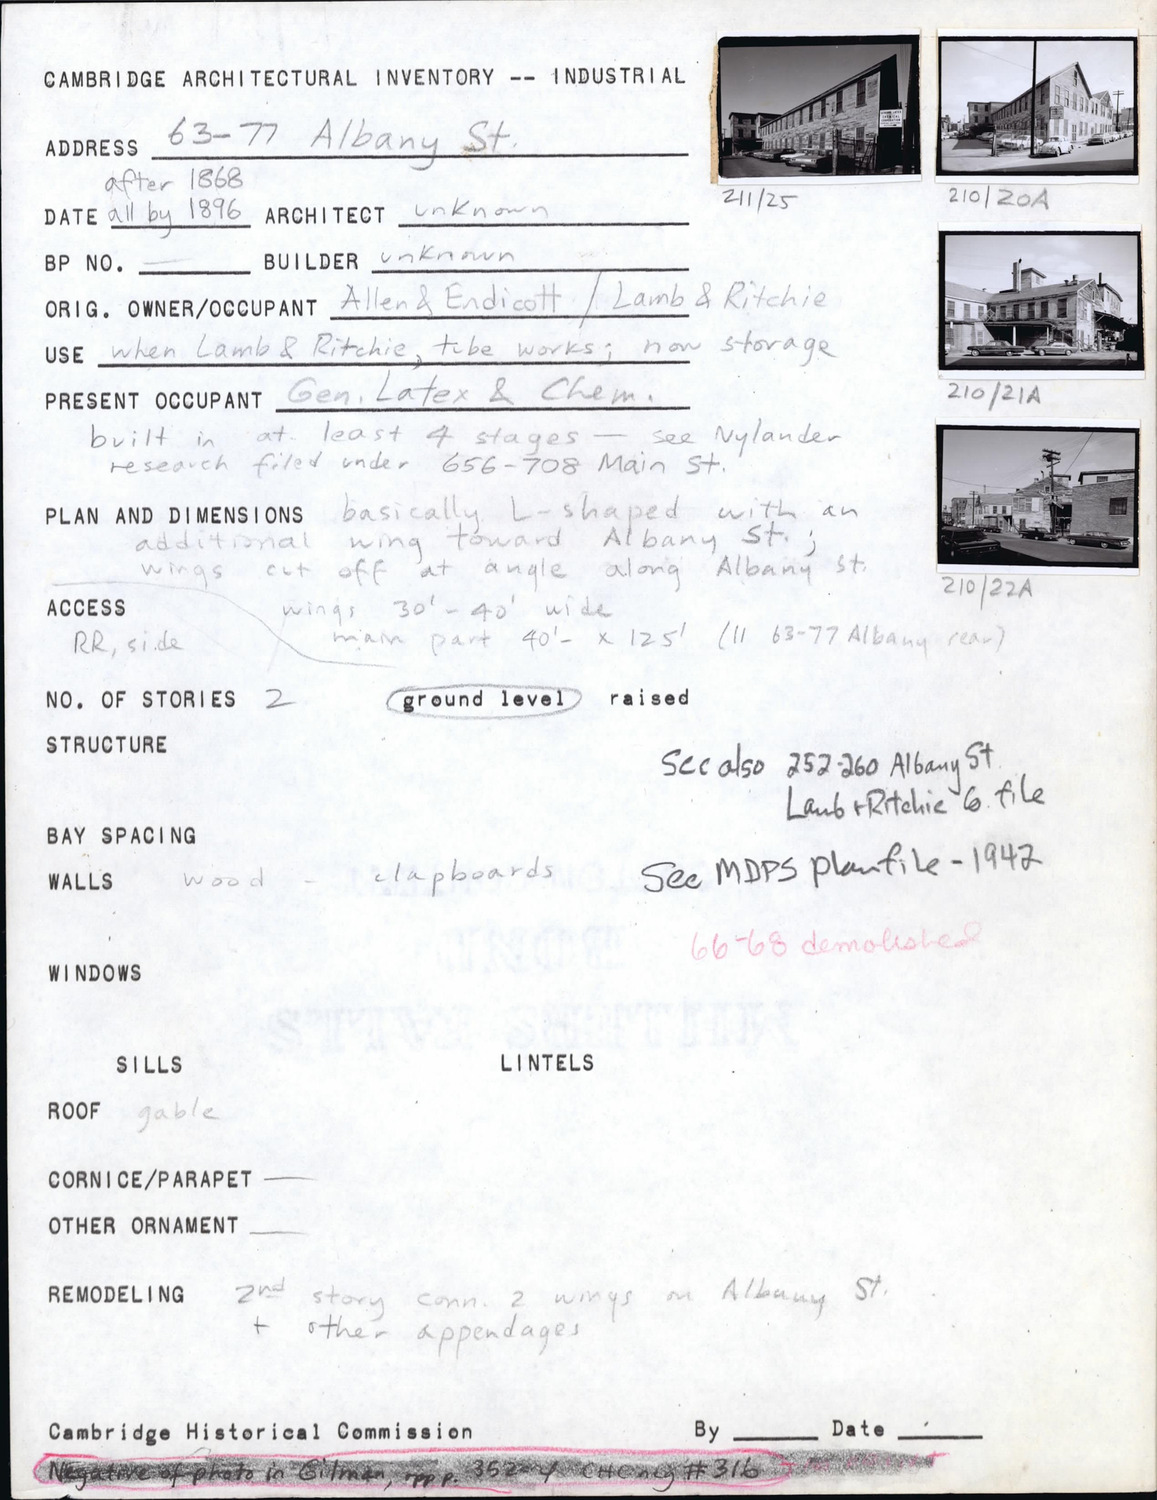 CAMBRIDGE ARCHITECTURAL INVENTORY -- INDUSTRIAL
ADDRESS 63-77 Albany St.
after 1868
DATE all by 1896 ARCHITECT unknown
BP NO. — BUILDER unknown
ORIG. OWNER/OCCUPANT Allen & Endicott / Lamb & Ritchie
USE when Lamb & Ritchie, tube works; now storage
PRESENT OCCUPANT Gen. Latex & Chem.
built in at least 4 stages — see Nylander
research filed under 656-708 Main St.
211/25
210/20A
210/21A
210/22A
PLAN AND DIMENSIONS basically L-shaped with an
additional wing toward Albany St.;
wings cut off at angle along Albany St.
ACCESS wings 30'-40' wide
RR, side main part 40'- x 125' (11 63-77 Albany rear)
NO. OF STORIES 2 ground level raised
STRUCTURE
See also 252-260 Albany St.
Lamb + Ritchie Co. file
BAY SPACING
WALLS wood - clapboards
See MDPS plan file - 1942
66-68 demolished
WINDOWS
SILLS LINTELS
ROOF gable
CORNICE/PARAPET —
OTHER ORNAMENT —
REMODELING 2nd story conn. 2 wings on Albany St.
+ other appendages
Cambridge Historical Commission By Date
Negative of photo in Gilman, opp p. 352-4 CHC neg #316